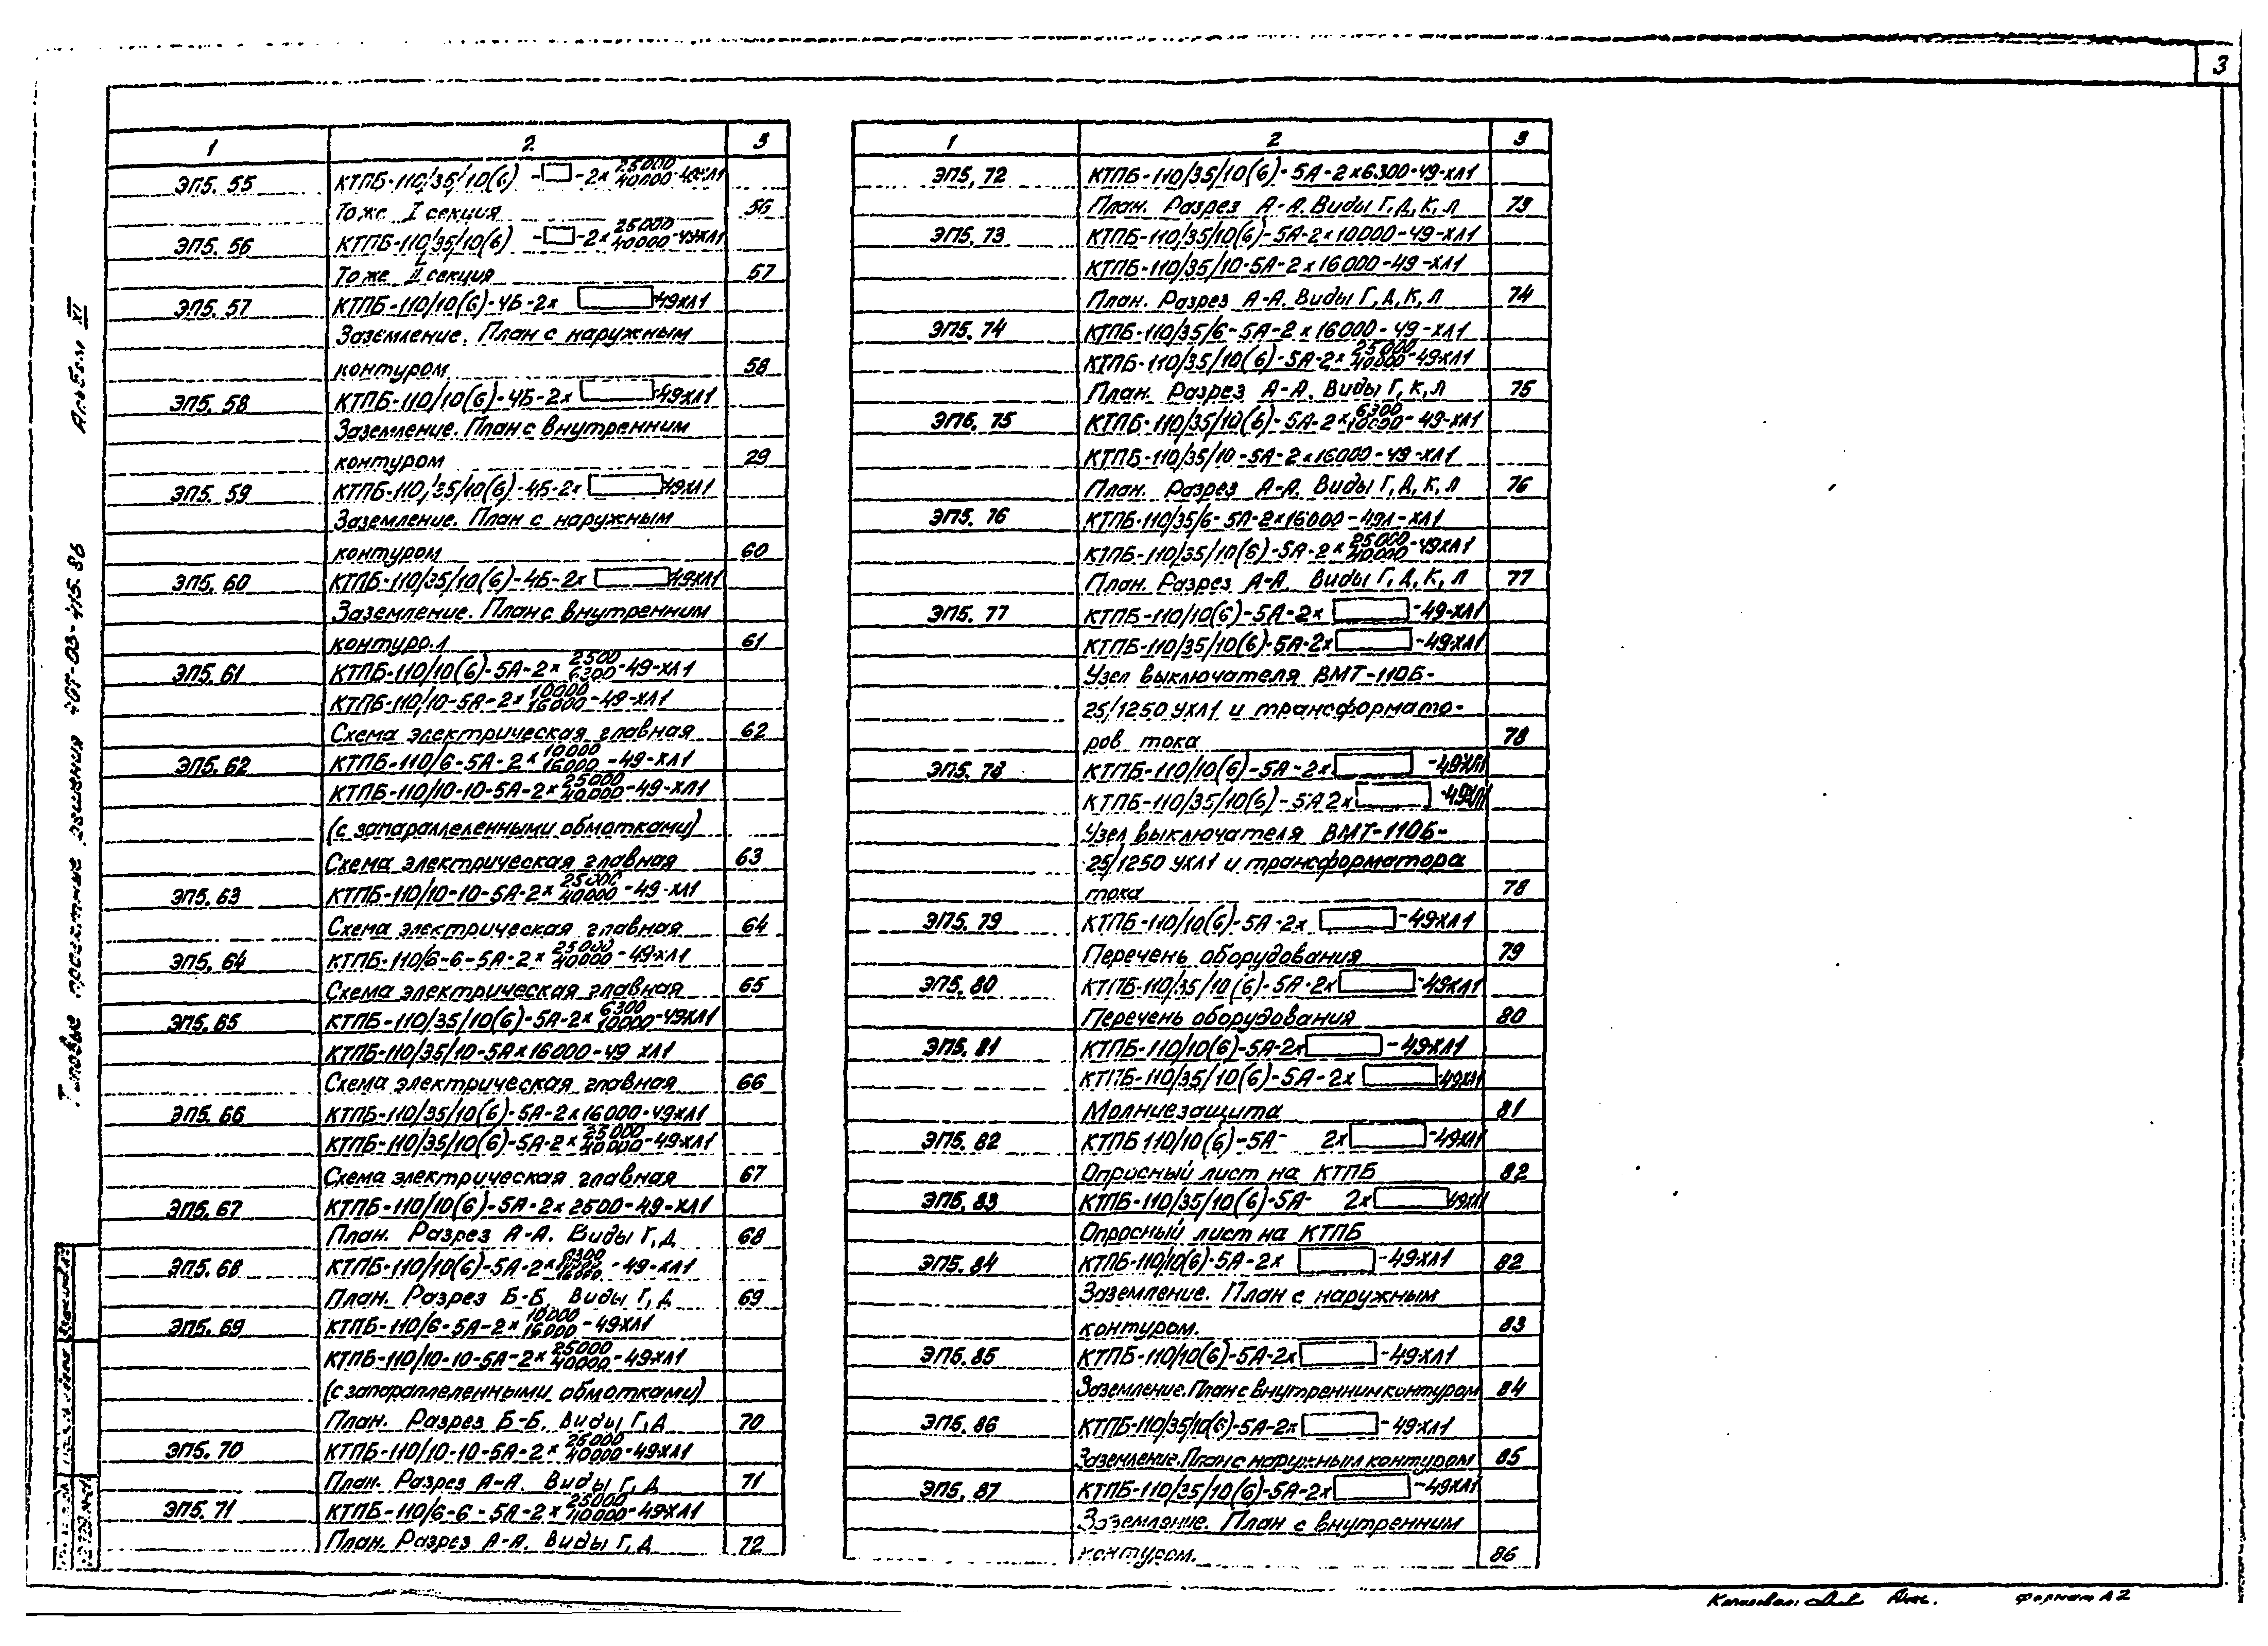 3
Альбом XI
Типовые проектные решения 407-03-415.86
1 2 3
ЭП5. 55 КТПБ-110/35/10(6) - -2х 25000 40000 -49-ХЛ1
То же I секция 56
ЭП5. 56 КТПБ-110/35/10(6) - -2х 25000 40000 -49ХЛ1
То же II секция 57
ЭП5. 57 КТПБ-110/10(6)-4Б-2х -49ХЛ1
Заземление. План с наружным
контуром 58
ЭП5. 58 КТПБ-110/10(6)-4Б-2х -49ХЛ1
Заземление. План с внутренним
контуром 29
ЭП5. 59 КТПБ-110/35/10(6)-4Б-2х -49ХЛ1
Заземление. План с наружным
контуром 60
ЭП5. 60 КТПБ-110/35/10(6)-4Б-2х -49ХЛ1
Заземление. План с внутренним
контуром 61
ЭП5. 61 КТПБ-110/10(6)-5А-2х 2500 6300 -49-ХЛ1
КТПБ-110/10-5А-2х 10000 16000 -49-ХЛ1
Схема электрическая главная 62
ЭП5. 62 КТПБ-110/6-5А-2х 10000 16000 -49-ХЛ1
КТПБ-110/10-10-5А-2х 25000 40000 -49-ХЛ1
(с запараллеленными обмотками)
Схема электрическая главная 63
ЭП5. 63 КТПБ-110/10-10-5А-2х 25000 40000 -49-ХЛ1
Схема электрическая главная 64
ЭП5. 64 КТПБ-110/6-6-5А-2х 25000 40000 -49-ХЛ1
Схема электрическая главная 65
ЭП5. 65 КТПБ-110/35/10(6)-5А-2х 6300 10000 -49ХЛ1
КТПБ-110/35/10-5Ах16000-49 ХЛ1
Схема электрическая главная 66
ЭП5. 66 КТПБ-110/35/10(6)-5А-2х16000-49ХЛ1
КТПБ-110/35/10(6)-5А-2х 25000 40000 -49-ХЛ1
Схема электрическая главная 67
ЭП5. 67 КТПБ-110/10(6)-5А-2х2500-49-ХЛ1
План. Разрез А-А. Виды Г, Д 68
ЭП5. 68 КТПБ-110/10(6)-5А-2х 6300 10000 16000 -49-ХЛ1
План. Разрез Б-Б. Виды Г, Д 69
ЭП5. 69 КТПБ-110/6-5А-2х 10000 16000 -49ХЛ1
КТПБ-110/10-10-5А-2х 25000 40000 -49ХЛ1
(с запараллеленными обмотками)
План. Разрез Б-Б. Виды Г, Д 70
ЭП5. 70 КТПБ-110/10-10-5А-2х 25000 40000 -49ХЛ1
План. Разрез А-А. Виды Г, Д 71
ЭП5. 71 КТПБ-110/6-6-5А-2х 25000 40000 -49ХЛ1
План. Разрез А-А. Виды Г, Д 72
1 2 3
ЭП5. 72 КТПБ-110/35/10(6)-5А-2х6300-49-ХЛ1
План. Разрез А-А. Виды Г, Д, К, Л 73
ЭП5. 73 КТПБ-110/35/10(6)-5А-2х10000-49-ХЛ1
КТПБ-110/35/10-5А-2х16000-49-ХЛ1
План. Разрез А-А. Виды Г, Д, К, Л 74
ЭП5. 74 КТПБ-110/35/6-5А-2х16000-49-ХЛ1
КТПБ-110/35/10(6)-5А-2х 25000 40000 -49ХЛ1
План. Разрез А-А. Виды Г, К, Л 75
ЭП5. 75 КТПБ-110/35/10(6)-5А-2х 6300 10000 -49-ХЛ1
КТПБ-110/35/10-5А-2х16000-49-ХЛ1
План. Разрез А-А. Виды Г, Д, К, Л 76
ЭП5. 76 КТПБ-110/35/6-5А-2х16000-49Л-ХЛ1
КТПБ-110/35/10(6)-5А-2х 25000 40000 -49ХЛ1
План. Разрез А-А. Виды Г, Д, К, Л 77
ЭП5. 77 КТПБ-110/10(6)-5А-2х -49-ХЛ1
КТПБ-110/35/10(6)-5А-2х -49-ХЛ1
Узел выключателя ВМТ-110Б-
25/1250 УХЛ1 и трансформато-
ров тока 78
ЭП5. 78 КТПБ-110/10(6)-5А-2х -49ХЛ1
КТПБ-110/35/10(6)-5А 2х -49ХЛ1
Узел выключателя ВМТ-110Б-
25/1250 УХЛ1 и трансформатора
тока 78
ЭП5. 79 КТПБ-110/10(6)-5А-2х -49ХЛ1
Перечень оборудования 79
ЭП5. 80 КТПБ-110/35/10(6)-5А-2х -49ХЛ1
Перечень оборудования 80
ЭП5. 81 КТПБ-110/10(6)-5А-2х -49ХЛ1
КТПБ-110/35/10(6)-5А-2х -49ХЛ1
Молниезащита 81
ЭП5. 82 КТПБ 110/10(6)-5А- 2х -49ХЛ1
Опросный лист на КТПБ 82
ЭП5. 83 КТПБ-110/35/10(6)-5А- 2х 49ХЛ1
Опросный лист на КТПБ
ЭП5. 84 КТПБ-110/10(6)-5А-2х -49ХЛ1 82
Заземление. План с наружным
контуром. 83
ЭП5. 85 КТПБ-110/10(6)-5А-2х -49-ХЛ1
Заземление. План с внутренним контуром 84
ЭП5. 86 КТПБ-110/35/10(6)-5А-2х -49ХЛ1
Заземление. План с наружным контуром 85
ЭП5. 87 КТПБ-110/35/10(6)-5А-2х -49ХЛ1
Заземление. План с внутренним
контуром. 86
Копировал: Формат А2